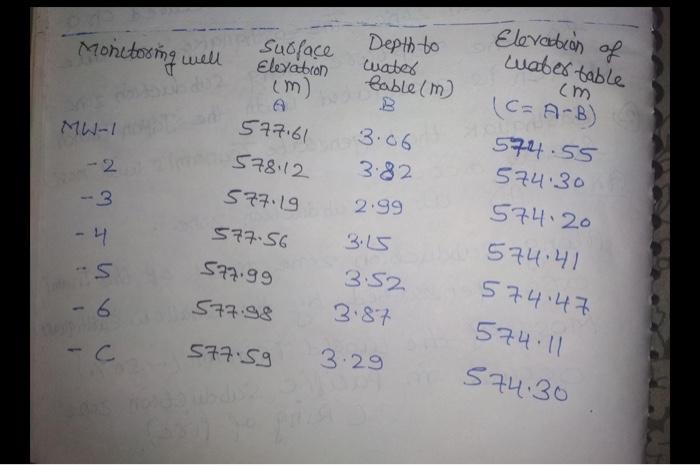 Monitoring well Surface Elevation (m) A Depth to water table (m) B Elevation of water table (m (C = A-B)
MW-1 577.61 3.06 574.55
-2 578.12 3.82 574.30
-3 577.19 2.99 574.20
-4 577.56 3.15 574.41
-5 577.99 3.52 574.47
-6 577.98 3.87 574.11
-C 577.59 3.29 574.30